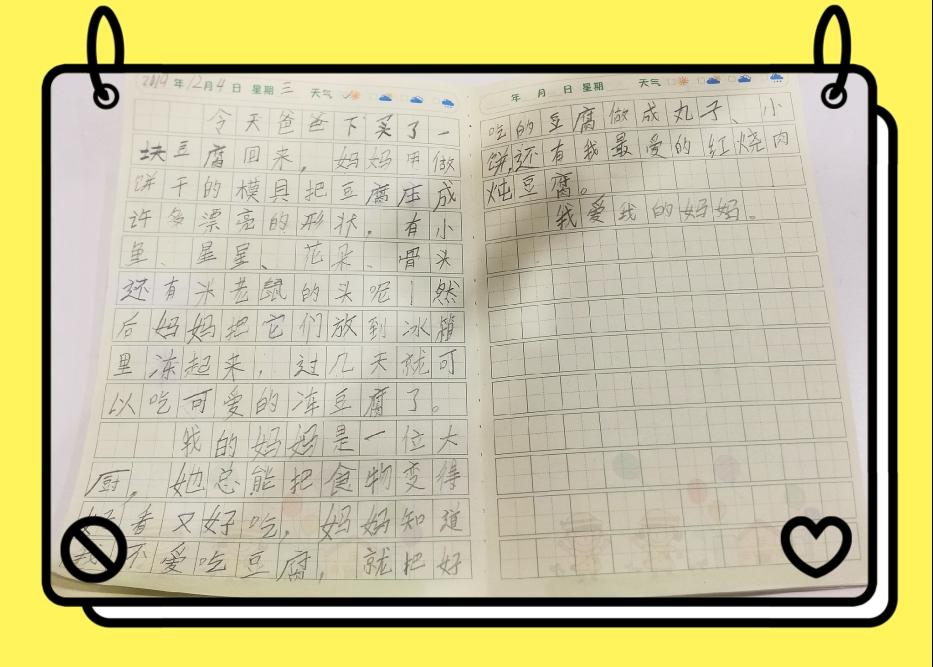 2019年12月4日 星期三 天气
今天爸爸下买了一
块豆腐回来,妈妈用做
饼干的模具把豆腐压成
许多漂亮的形状。有小
鱼、星星、花朵、骨头
还有米老鼠的头呢!然
后妈妈把它们放到冰箱
里冻起来,过几天就可
以吃可爱的冻豆腐了。
我的妈妈是一位大
厨,她总能把食物变得
好看又好吃,妈妈知道
我不爱吃豆腐,就把好
年 月 日 星期 天气
吃的豆腐做成丸子、小
饼,还有我最爱的红烧肉
炖豆腐。
我爱我的妈妈。